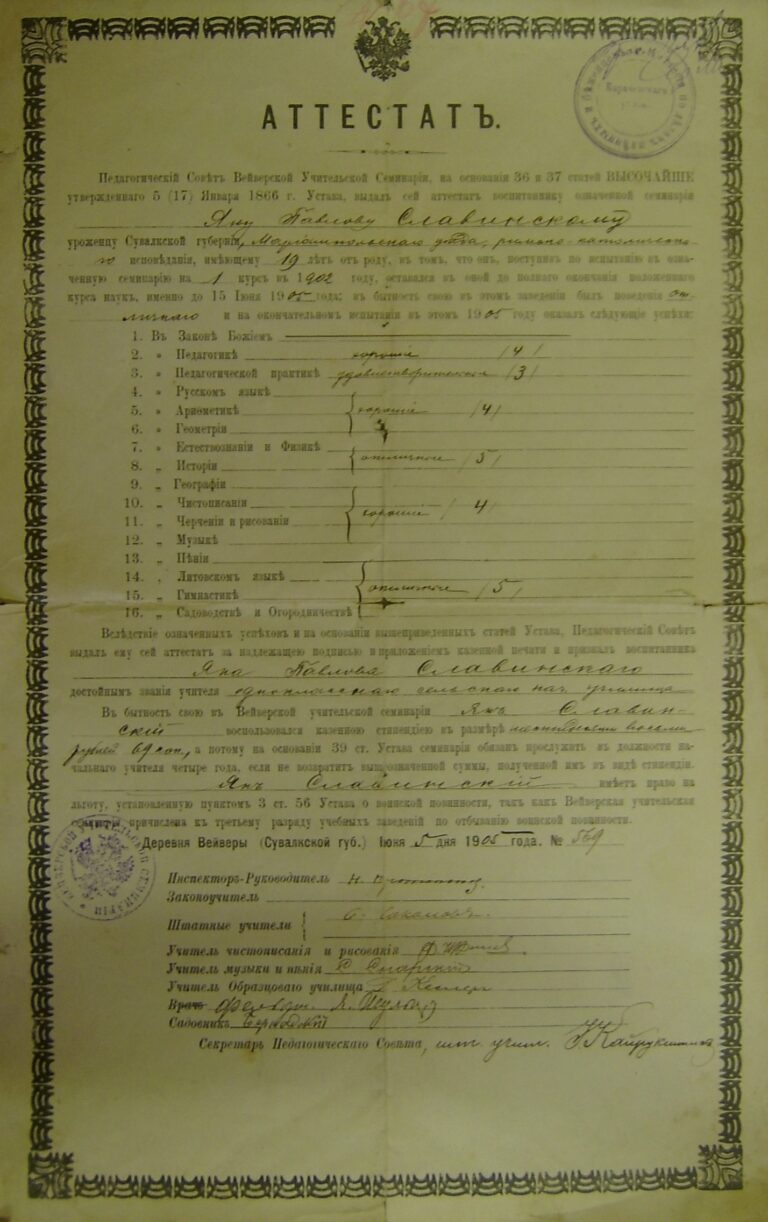 АТТЕСТАТЪ.
Педагогическій Совѣтъ Вейверской Учительской Семинаріи, на основаніи 36 и 37 статей ВЫСОЧАЙШЕ
утвержденнаго 5 (17) Января 1866 г. Устава, выдалъ сей аттестатъ воспитаннику означенной семинаріи
Яну Павлову Славинскому
уроженцу Сувалкской губерніи, Маріампольскаго уѣзда, римско-католическа-
го исповѣданія, имѣющему 19 лѣтъ отъ роду, въ томъ, что онъ, поступив по испытанію въ озна-
ченную семинарію на 1 курсъ въ 1902 году, оставался въ оной до полнаго окончанія положеннаго
курса наукъ, именно до 15 Іюня 1905 года; въ бытность свою въ этомъ заведеніи былъ поведенія от-
личнаго и на окончательномъ испытаніи въ этомъ 1905 году оказалъ слѣдующіе успѣхи:
1. Въ Законѣ Божіемъ
2. „ Педагогикѣ хорошіе /4/
3. „ Педагогической практикѣ удовлетворительные /3/
4. „ Русскомъ языкѣ
5. „ Ариѳметикѣ хорошіе /4/
6. „ Геометріи
7. „ Естествознаніи и Физикѣ
8. „ Исторіи отличные /5/
9. „ Географіи
10. „ Чистописаніи
11. „ Черченіи и рисованіи хорошіе /4
12. „ Музыкѣ
13. „ Пѣніи
14. „ Литовскомъ языкѣ
15. „ Гимнастикѣ отличные /5/
16. „ Садоводствѣ и Огородничествѣ
Вслѣдствіе означенныхъ успѣховъ и на основаніи вышеприведенныхъ статей Устава, Педагогическій Совѣтъ
выдалъ ему сей аттестатъ за надлежащею подписью и приложеніемъ казенной печати и призналъ воспитанника
Яна Павлова Славинскаго
достойнымъ званія учителя одноклассныхъ сельскихъ нач. училищъ
Въ бытность свою въ Вейверской учительской семинаріи Янъ Славин-
скій воспользовался казенною стипендіею въ размѣрѣ восьми
рублей 69 коп., а потому на основаніи 39 ст. Устава семинаріи обязанъ прослужить въ должности на-
чальнаго учителя четыре года, если не возвратитъ вышеозначенной суммы, полученной имъ въ видѣ стипендіи.
Янъ Славинскій имѣетъ право на
льготу, установленную пунктомъ 3 ст. 56 Устава о воинской повинности, такъ какъ Вейверская учительская
семинарія причислена къ третьему разряду учебныхъ заведеній по отбыванію воинской повинности.
Деревня Вейверы (Сувалкской губ.) Іюня 5 дня 1905 года. № 569
Инспекторъ-Руководитель Н.
Законоучитель
Штатные учители
Учитель чистописанія и рисованія
Учитель музыки и пѣнія
Учитель Образцоваго училища
Врачъ фельдш.
Садовникъ
Секретарь Педагогическаго Совѣта, шт. учит.